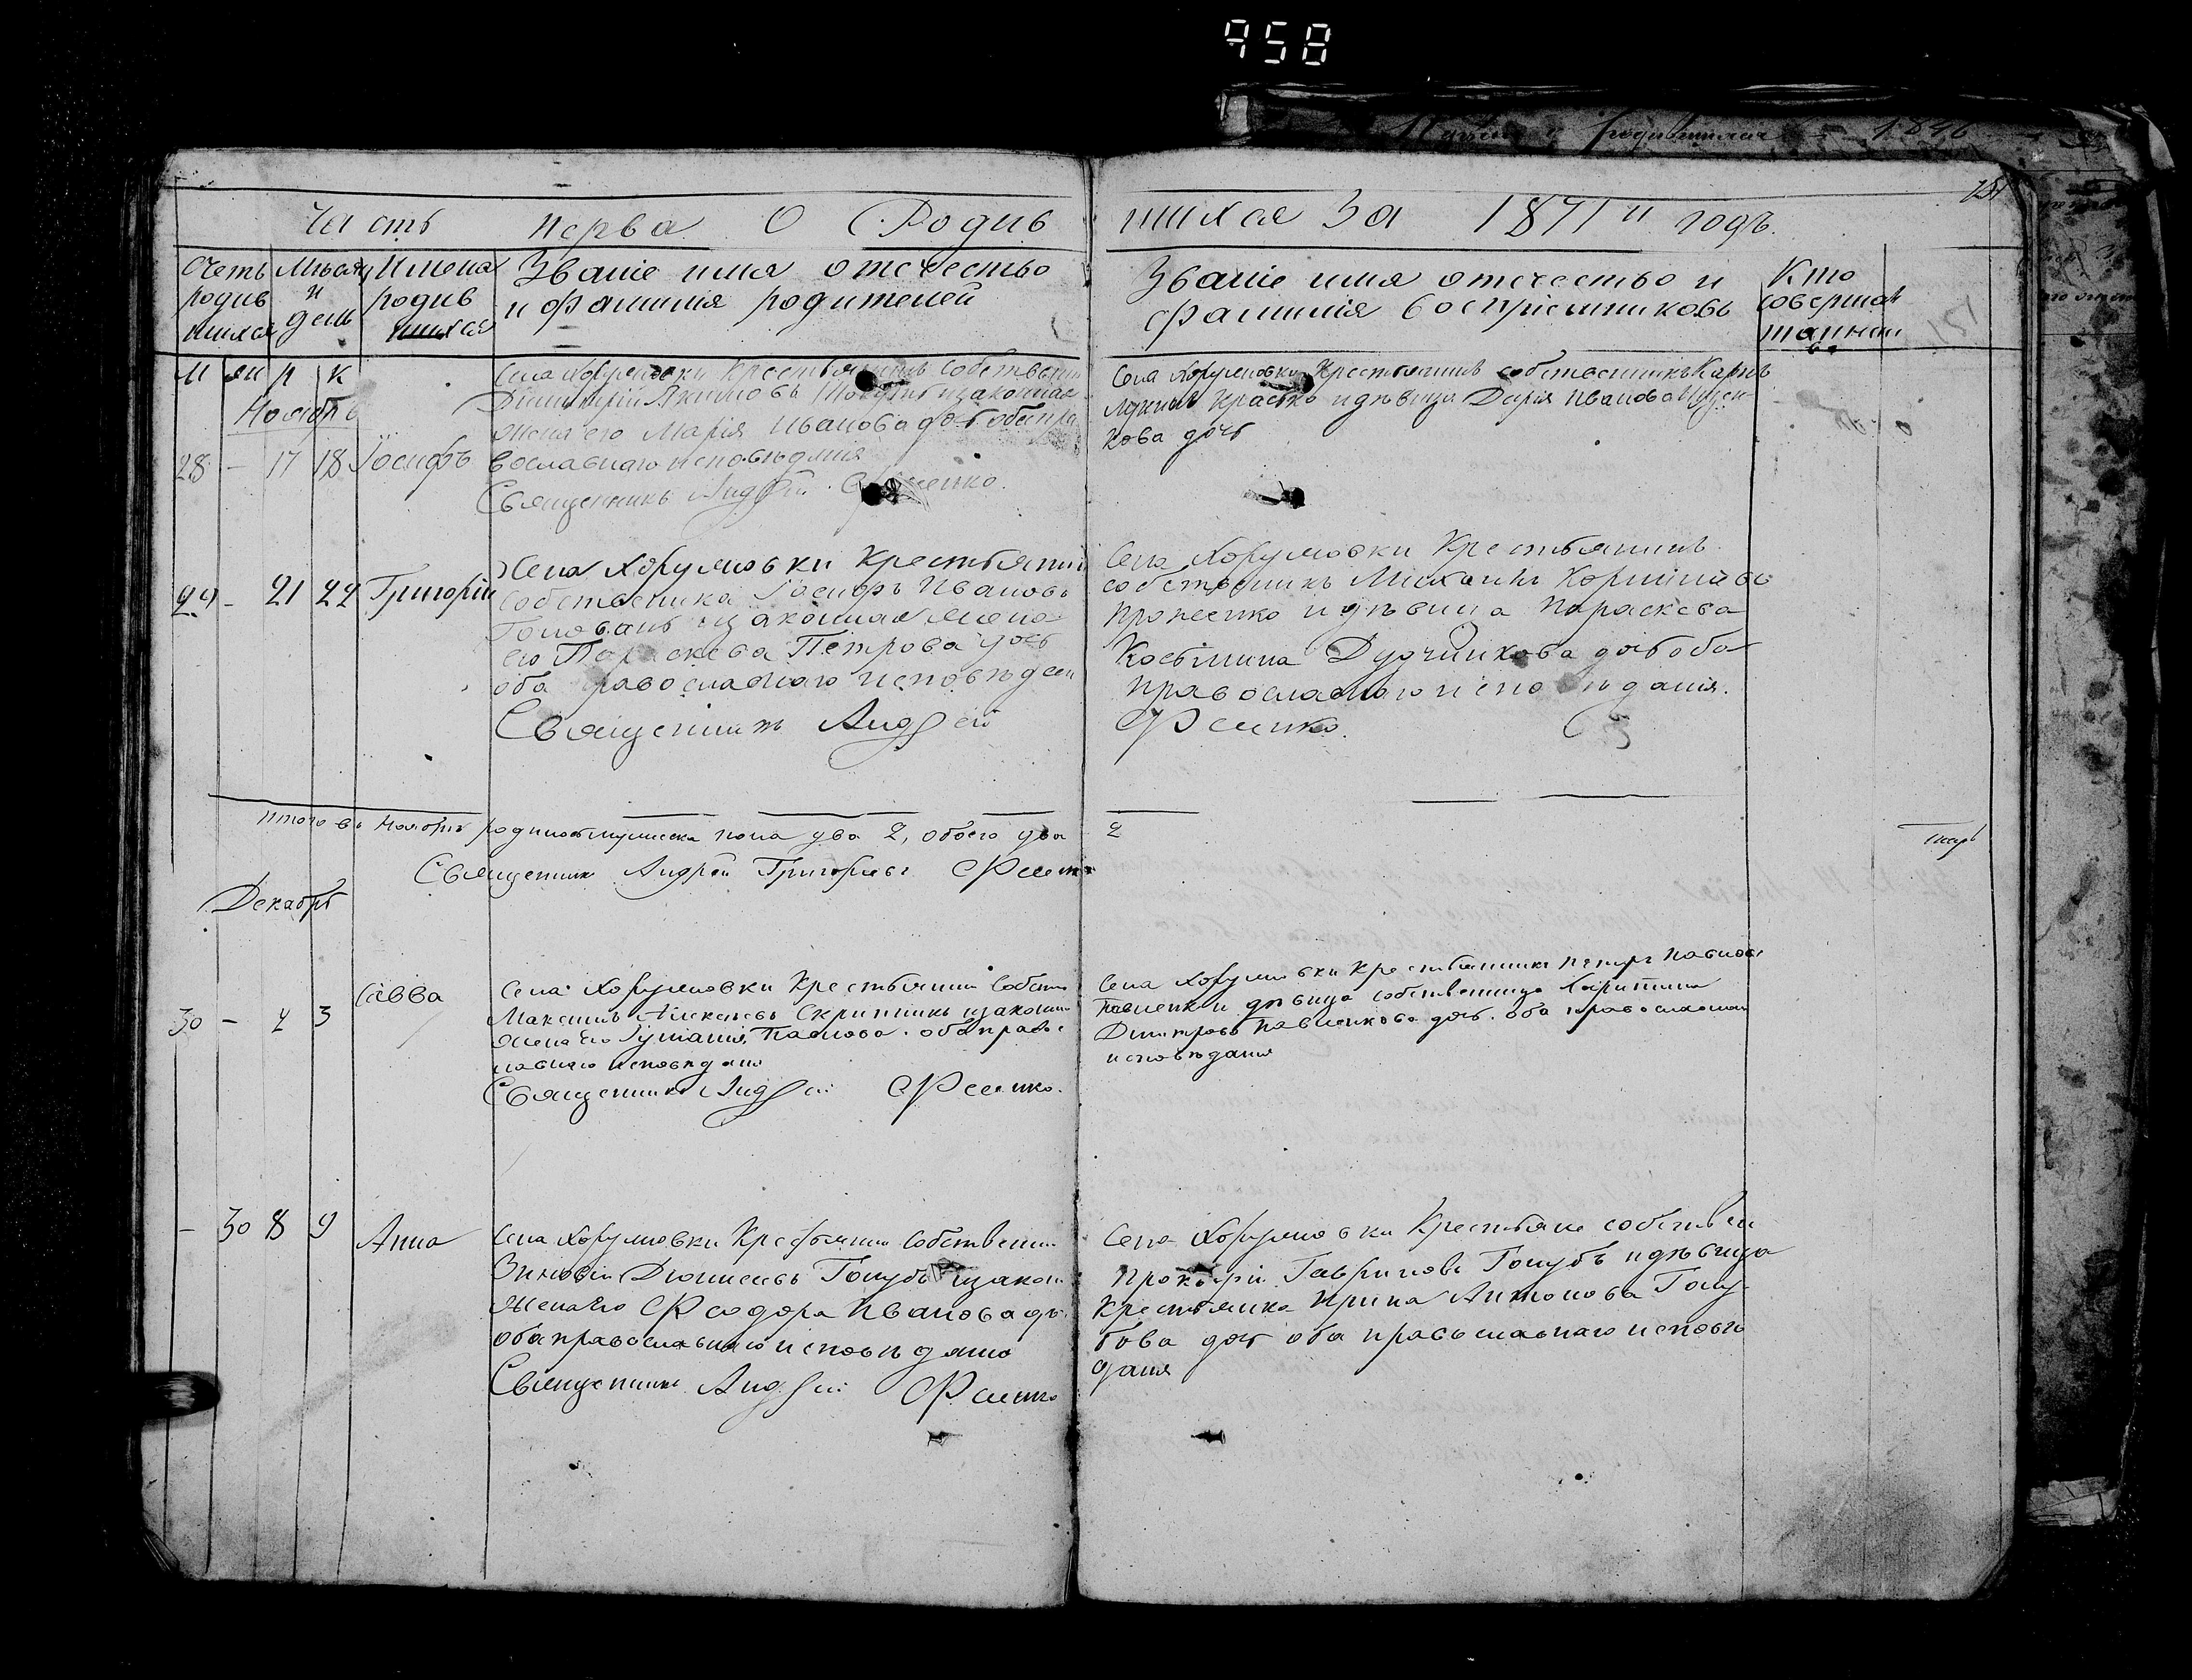 958
Часть перва О Родив
шихся За 1871й годъ.
151
Счетъ родив шихся
Мѣсяцъ и день
Имена родив шихся
Званіе имя отечество
и фамилія родителей
Званіе имя отечество и
фамилія Воспріемниковъ
Кто
соверша
таинст
ва
М ж р к
Ноябрь
28 – 17 18 Іосифъ
Села Хоружовки Крестьянинъ Собствен
Димитрій Якимовъ и законная
жена его Марія Иванова доч оба пра
вославнаго исповѣданія
Священникъ Андрей
Села Хоружовки Крестьянинъ собственникъ Карпъ
и дѣвица Дарія Иванова
кова доч
29 – 21 22 Григорій
Села Хоружовки Крестьянин
Собственика Іосифъ Ивановъ
Головань и законная жена
его Параскева Петрова доч
оба православнаго исповѣдан
Священникъ Андрей
Села Хоружовки Крестьянинъ
собственикъ Михаилъ
и дѣвица Параскева
Косьмина Дудчинкова доч оба
православнаго исповѣданія.
Фесенко
Итого въ Ноябрѣ родилось мужеска пола два 2, обоего два
2
Священник Андрей Григорьев Фесенко
Декабрь
30 – 2 3 Савва
Села Хоружовки Крестьянин Собств
Максимъ Алексѣевъ Скрипникъ и законн
жена его Павлова оба право
лавнаго исповѣдания
Священникъ Андрей Фесенко.
Села Хоружовки Крестьянинъ Петръ Павловъ
Павленк и дѣвица собственница Харитина
Димитрова Павленкова доч. оба православнаго
исповѣдания
– 30 8 9 Анна
Села Хоружовки Крестьянин Собственни
Зиновій Дионисіевъ Голубъ и закон
жена его Феодора Иванова до
оба православнаго исповѣдания
Священникъ Андрей Фесенко
Села Хоружовки Крестьяне собствен
Прокопій Гавриловъ Голубъ и дѣвица
крестьянка Ирина Антонова Голу
бова доч оба православнаго исповѣ
дания